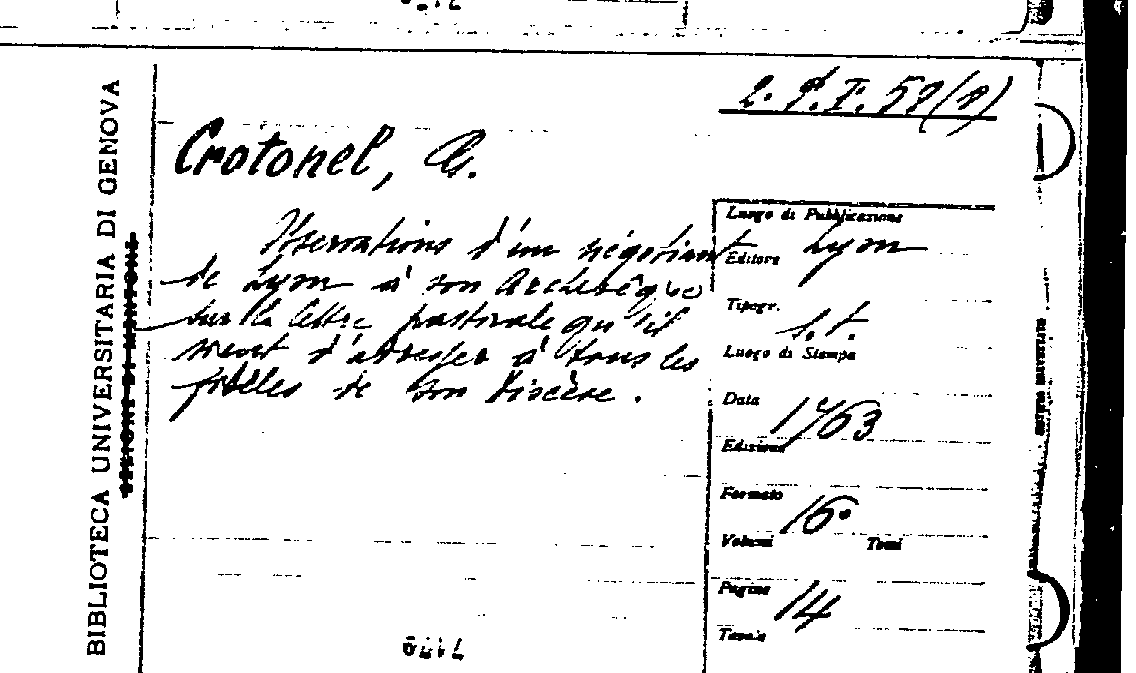 BIBLIOTECA UNIVERSITARIA DI GENOVA
Crotonel, A.
Observations d'un négotiant
de Lyon à son Archevêque
sur la lettre pastorale qu'il
vient d'adresser à tous les
fidèles de son diocèse.
Luogo di Pubblicazione Lyon
Editore
Tipogr. s.t.
Luogo di Stampa
Data 1763
Edizione
Formato 16º
Volumi Tomi
Pagine 14
Tavole